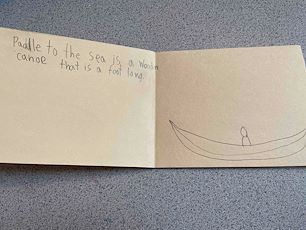 Paddle to the Sea is a wooden
canoe that is a foot long.